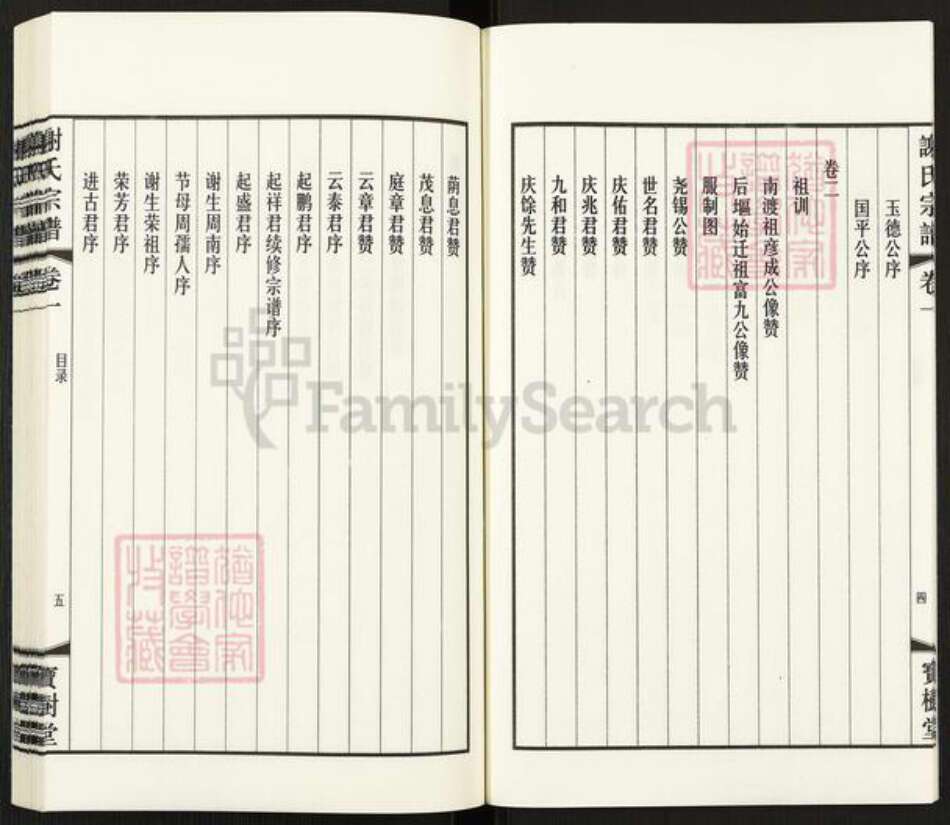 谢氏宗谱 卷一
四
寳樹堂
玉德公序
国平公序
卷二
祖训
南渡祖彦成公像赞
后堰始迁祖富九公像赞
服制图
尧锡公赞
世名君赞
庆佑君赞
庆兆君赞
九和君赞
庆馀先生赞
荫息君赞
茂息君赞
庭章君赞
云章君赞
云泰君序
起鹏君序
起祥君续修宗谱序
起盛君序
谢生周南序
节母周孺人序
谢生荣祖序
荣芳君序
进古君序
谢氏宗谱 卷一
目录
五
寳樹堂
FamilySearch